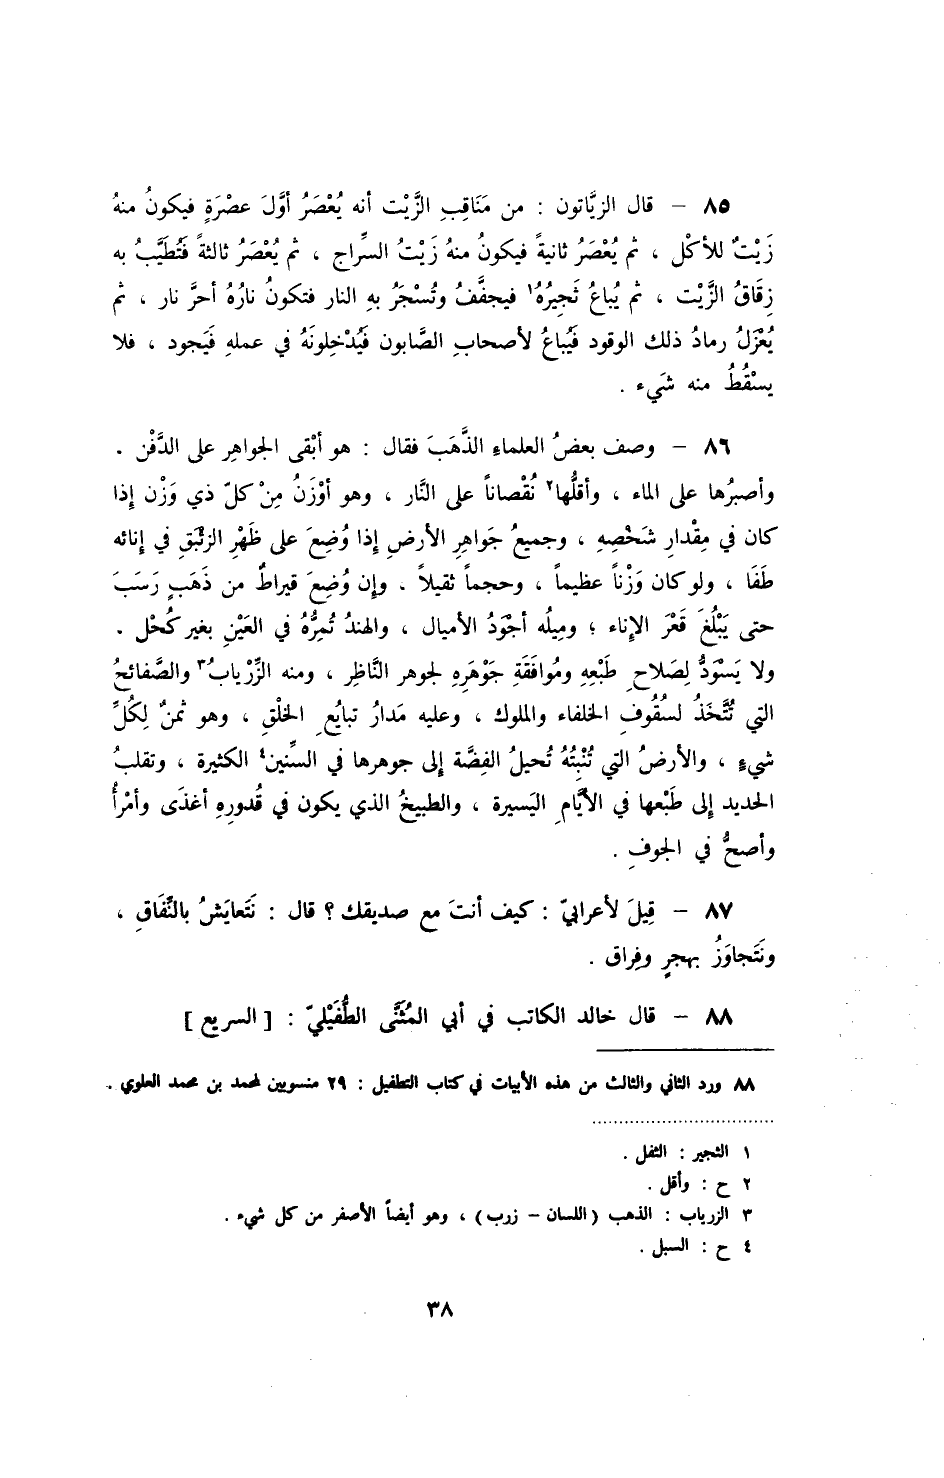 ٨٥ – قال الزيَّاتون : من مَنَاقِبِ الزَّيْت أنه يُعْصَرُ أوَّلَ عصْرَةٍ فيكونُ منهُ
زَيْتٌ للأكْل ، ثم يُعْصَرُ ثانيةً فيكونُ منهُ زَيْتُ السرِّاج ، ثم يُعْصَرُ ثالثةً فَتُطَيَّبُ به
زِقَاقُ الزَّيْت ، ثم يُباعُ ثَجِيرُهُ١ فيجفَّفُ وتُسْجَرُ بهِ النار فتكونُ نارُهُ أحرَّ نار ، ثم
يُعْزَلُ رمادُ ذلك الوقود فيُباعُ لأصحابِ الصَّابون فيُدْخِلونَهُ في عملهِ فَيَجود ، فلا
يسْقُطُ منه شَيء .
٨٦ – وصف بعضُ العلماءِ الذَّهَبَ فقال : هو أبْقى الجواهِر على الدَّفْن .
وأصبرُها على الماء ، وأقلُّها٢ نُقْصاناً على النَّار ، وهو أوْزَنُ مِنْ كلّ ذي وَزْن إذا
كان في مِقْدارِ شَخْصِهِ ، وجميعُ جَواهِرِ الأرضِ إذا وُضِعَ على ظَهْرِ الزئْبَقِ في إنائه
طَفَا ، ولو كان وَزْناً عظيماً ، وحجماً ثقيلاً . وإن وُضِعَ قيراطٌ من ذَهَبٍ رَسَبَ
حتى يَبْلُغَ قَعْرَ الإناء ؛ ومِيلُه أجْوَدُ الأميال ، والهندُ تُمِرُّهُ في العَيْنِ بغير كُحْل .
ولا يَسْوَدُّ لِصَلاحِ طَبْعِهِ ومُوافَقَةِ جَوْهَرِهِ لجوهر النَّاظِر ، ومنه الزِّرْيابُ٣ والصَّفائحُ
التي تُتَّخَذُ لسقُوفِ الخلفاء والملوك ، وعليه مَدارُ تبايُعِ الخلْقِ ، وهو ثمنٌ لِكُلِّ
شيءٍ ، والأرضُ التي تُنْبِتُهُ تُحيلُ الفِضَّة إلى جوهرها في السنِّين٤ الكثيرة ، وتقلبُ
الحديد إلى طَبْعها في الأيَّامِ اليَسيرة ، والطبيخُ الذي يكون في قُدورِهِ أغذَى وأمْرأُ
وأصحُّ في الجوفِ .
٨٧ – قِيلَ لأعرابيّ : كيف أنتَ مع صديقك ؟ قال : نَتَعايَشُ بالنِّفَاقِ ،
ونَتَجاوَزُ بهجرٍ وفِراق .
٨٨ – قال خالد الكاتب في أبي المُثَنَّى الطُّفَيْليّ : [ السريع ]
٨٨ ورد الثاني والثالث من هذه الأبيات في كتاب التطفيل : ٢٩ منسوبين لمحمد بن محمد العلوي .
١ الثجير : الثفل .
٢ ح : وأقل .
٣ الزرياب : الذهب (اللسان – زرب) ، وهو أيضاً الأصفر من كل شيء .
٤ ح : السبل .
٣٨